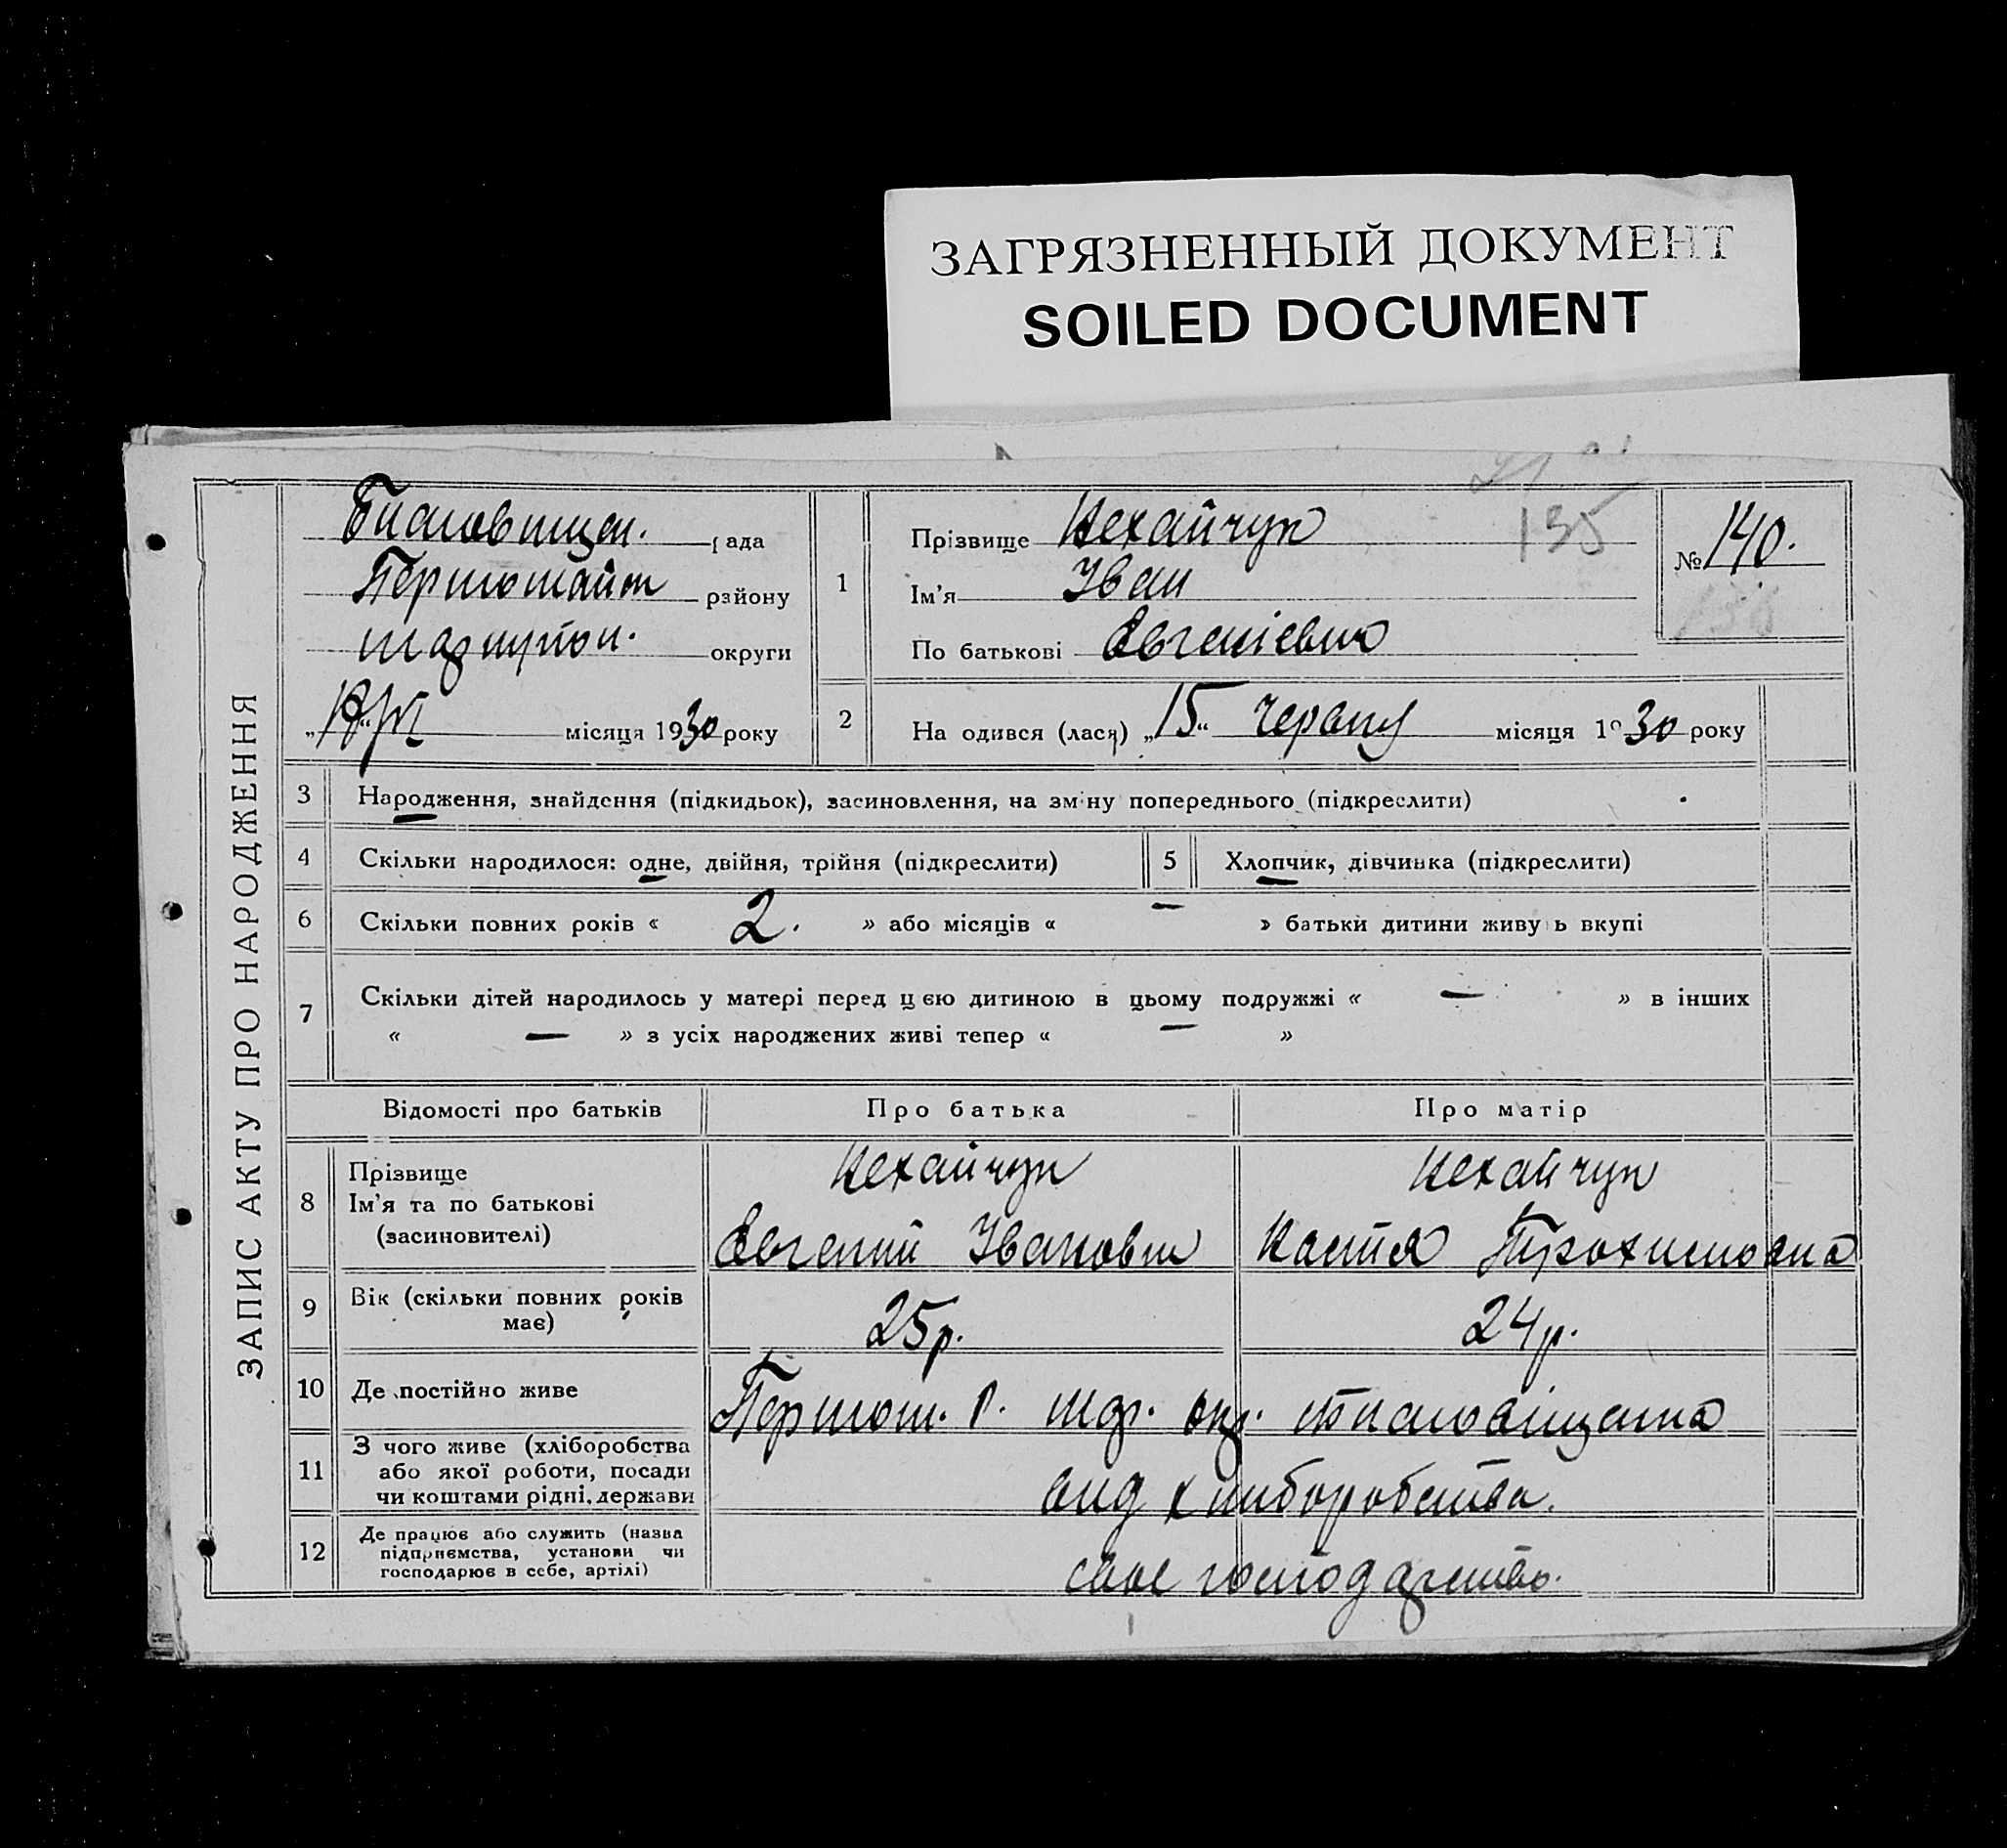 ЗАГРЯЗНЕННЫЙ ДОКУМЕНТ
SOILED DOCUMENT
ЗАПИС АКТУ ПРО НАРОДЖЕННЯ
рада
Першотайм району
округи
місяця 1930 року
135
№ 140.
1 Прізвище Нехайчук
Ім'я Іван
По батькові Євгенієвич
2 На одився (лася) „15“ червня місяця 1930 року
3 Народження, знайдення (підкидьок), засиновлення, на зміну попереднього (підкреслити)
4 Скільки народилося: одне, двійня, трійня (підкреслити)
5 Хлопчик, дівчинка (підкреслити)
6 Скільки повних років « 2. » або місяців « — » батьки дитини живуть вкупі
7 Скільки дітей народилось у матері перед цією дитиною в цьому подружжі « — » в інших
« — » з усіх народжених живі тепер « — »
Відомості про батьків Про батька Про матір
8 Прізвище
Ім'я та по батькові
(засиновителі)
Нехайчук
Євгений Іванович
Нехайчук
Настя Трохимовна
9 Вік (скільки повних років
має)
25р.
24р.
10 Де постійно живе
Першом. р. окр.
11 З чого живе (хліборобства
або якої роботи, посади
чи коштами рідні, держави
від хліборобства.
12 Де працює або служить (назва
підприємства, установи чи
господарює в себе, артілі)
своє господарство.